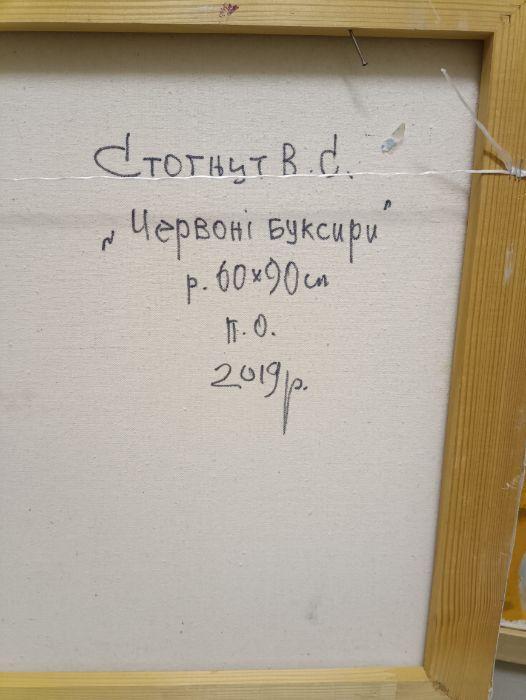 Стогнут В.С.
„Червоні буксири"
р. 60×90см
п.о.
2019р.